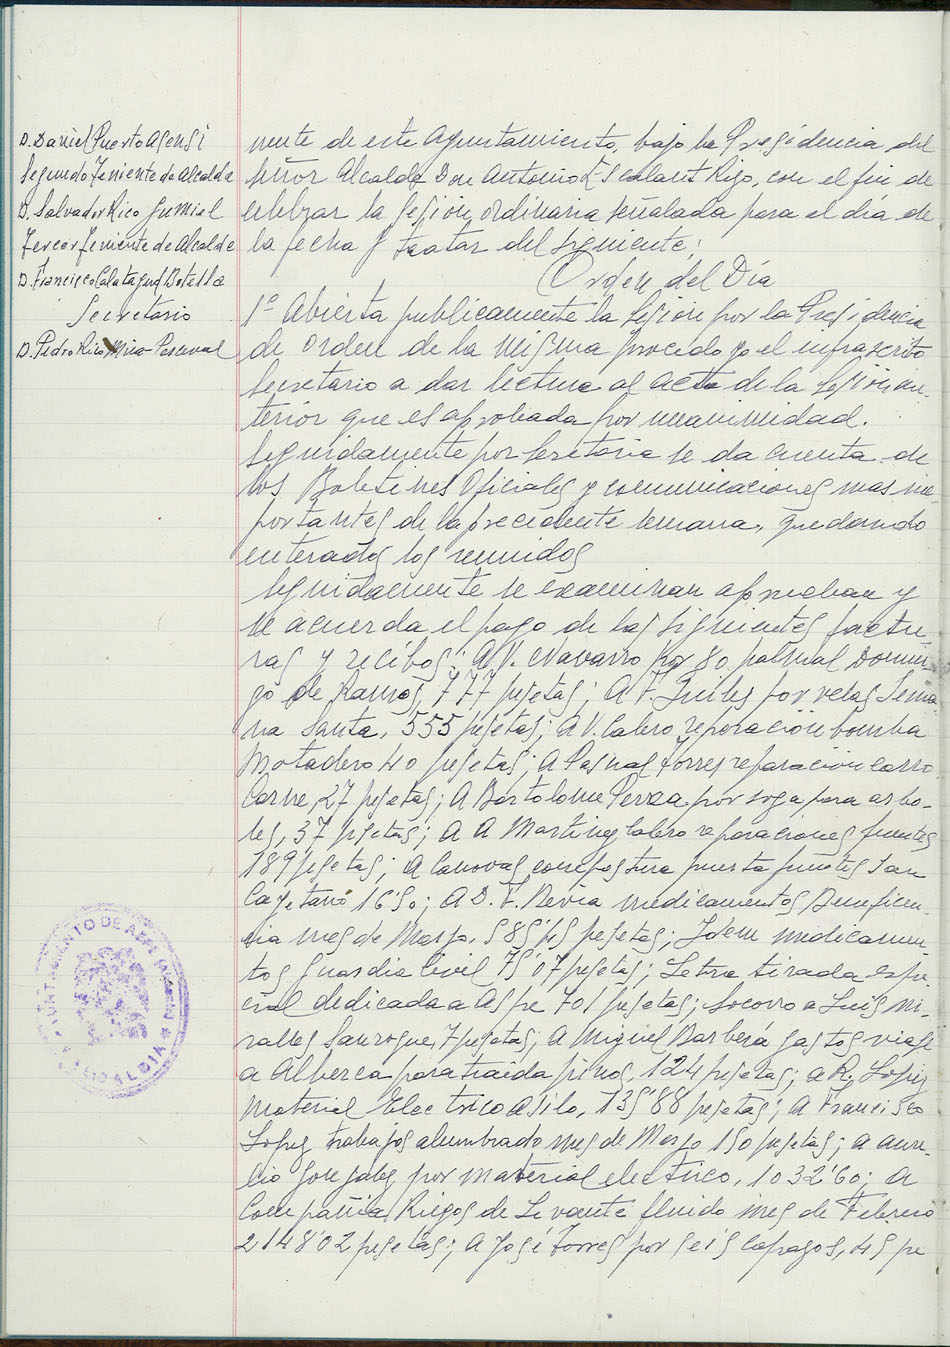 D. Daniel Puerto Asensi
Segundo Teniente de Alcalde
D. Salvador Rico Gumiel
Tercer Teniente de Alcalde
D. Francisco Calatayud Botella
Secretario
D. Pedro Rico Mira-Perceval
nente de este Ayuntamiento, bajo la Presidencia del
Señor Alcalde Don Antonio Escalant Rigo, con el fin de
celebrar la sesion, ordinaria señalada para el día de
la fecha y tratar del siguiente;
Orden del Día
1º Abierta publicamente la sesion por la Presidencia
de orden de la misma procedo yo el infrascrito
Secretario a dar lectura al acta de la sesión an-
terior que es aprobada por unanimidad.
Seguidamente por Secretaria se da cuenta de
los Boletines Oficiales y comunicaciones mas im-
portantes de la precedente semana, quedando
enterados los reunidos
Seguidamente se examinan aprueban y
se acuerda el pago de las siguientes factu-
ras y recibos: A V. Navarro por 80 palmas Domin-
go de Ramos, 777 pesetas; A F. por velas Sema
na Santa, 555 pesetas; A V. Calero reparación bomba
Matadero 40 pesetas; A Pascual Torres reparación carro
Carne, 27 pesetas; A Bartolome Perea por soga para arbo-
les, 37 pesetas; A A Martinez Calero reparaciones fuentes
189 pesetas; A Canovas compostura puerta San
Cayetano 16'50; A D. F. Revia medicamentos Beneficen-
cia mes de Marzo, 585'45 pesetas; Idem medicamen-
tos Guardia Civil 75'07 pesetas; Letra tirada espe-
cial dedicada a Aspe 701 pesetas; Socorro a Luis Mi-
ralles Sanroque, 7 pesetas; A Miguel Barberá gastos viaje
a Alberca para traida pinos, 124 pesetas; a R. Lopez
Material Electrico Asilo, 135'88 pesetas; A Francisco
Lopez trabajos alumbrado mes de Marzo 150 pesetas; a Aure-
lio Gonzalez por material electrico, 1032'60; A
Compañia Riegos de Levante fluido mes de Febrero
2148'02 pesetas; A José Torres por seis capazos, 45 pe
AYUNTAMIENTO DE ASPE (ALICANTE)
ALCALDIA